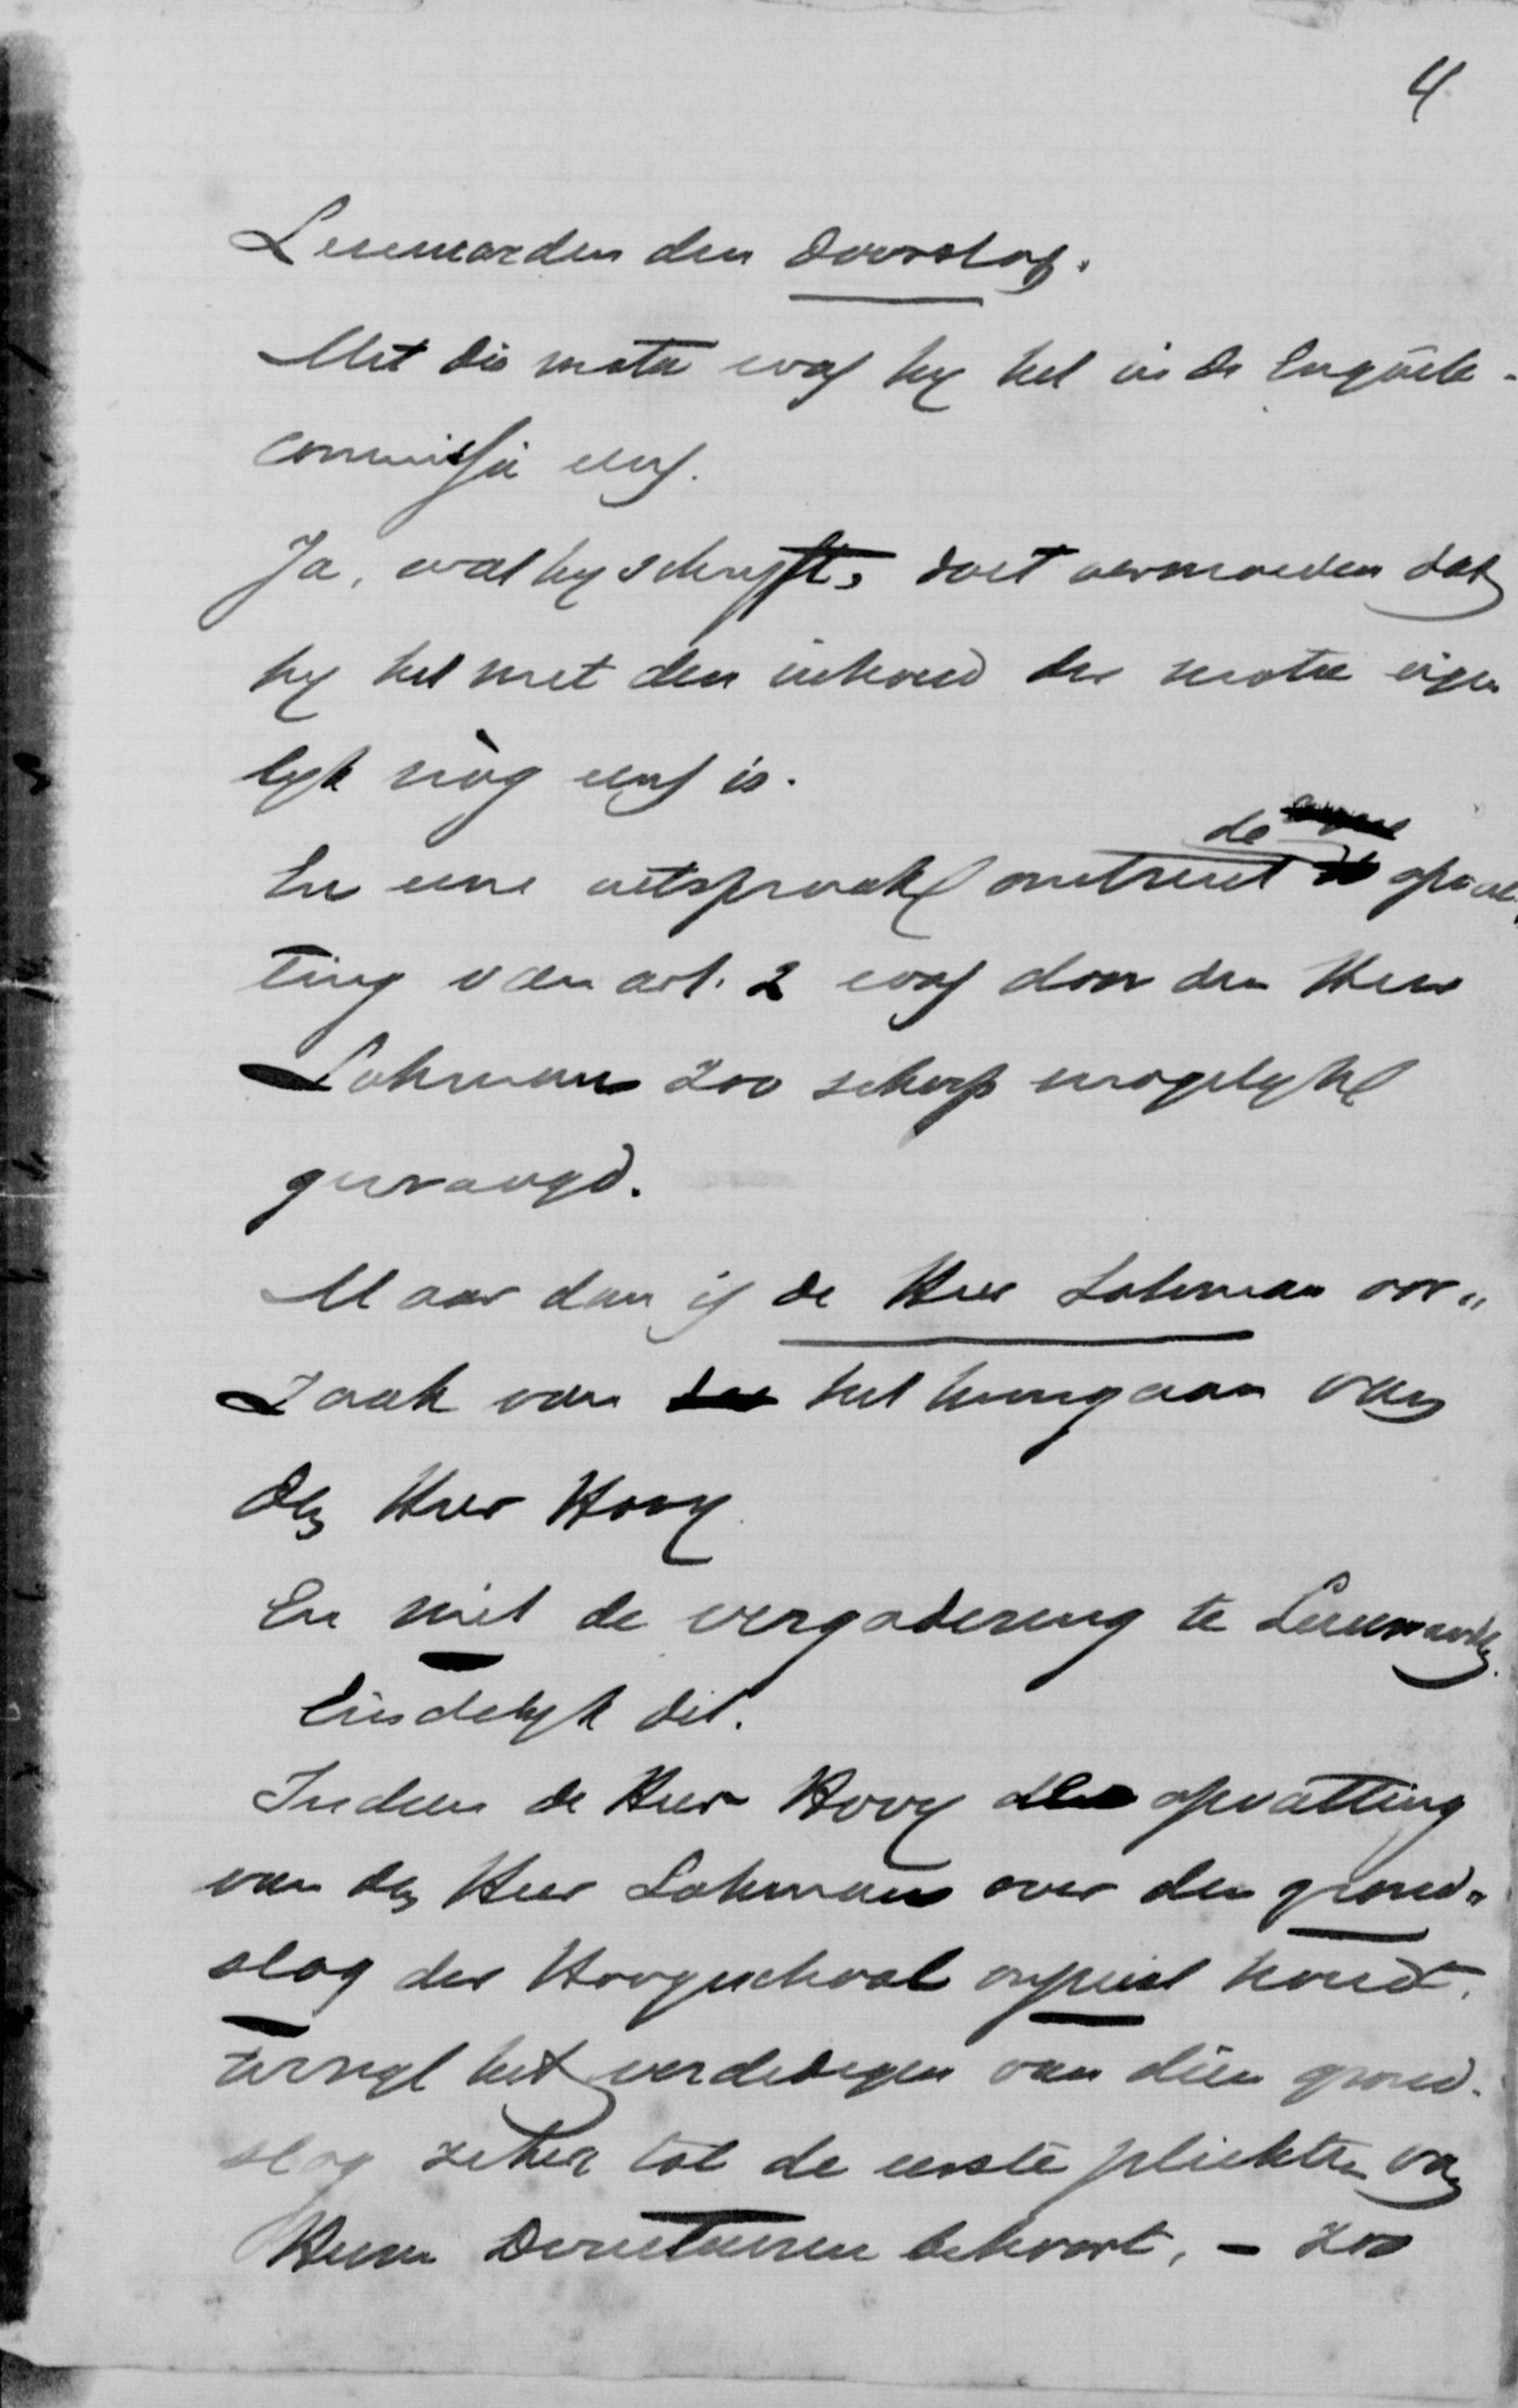 4
Leeuwarden den doorslag.
Met die motie was hy het in de Enquête-
commissie eens.
Ja, wat hy schryft, doet vermoeden dat
hy het met den inhoud der motie eigen
lyk nòg eens is.
En eene uitspraak omtrent de opvat-
ting van art. 2 was door den Heer
Lohman zoo scherp mogelyk
gevraagd.
Maar dan is de Heer Lohman oor-
zaak van het heengaan van
den Heer Hovy
En niet de vergadering te Leeuwarden.
Eindelyk dit.
Indien de Heer Hovy de opvatting
van den Heer Lohman over den grond-
slag der Hoogeschool onjuist houdt,
terwyl het verdedigen van dien grond-
slag zeker tot de eerste plichten van
Heeren Directeuren behoort, - zoo